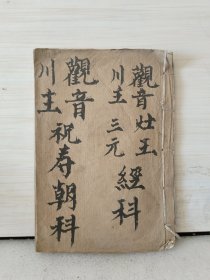 觀音灶王
川主三元
經科
觀音
川主
祝寿朝科